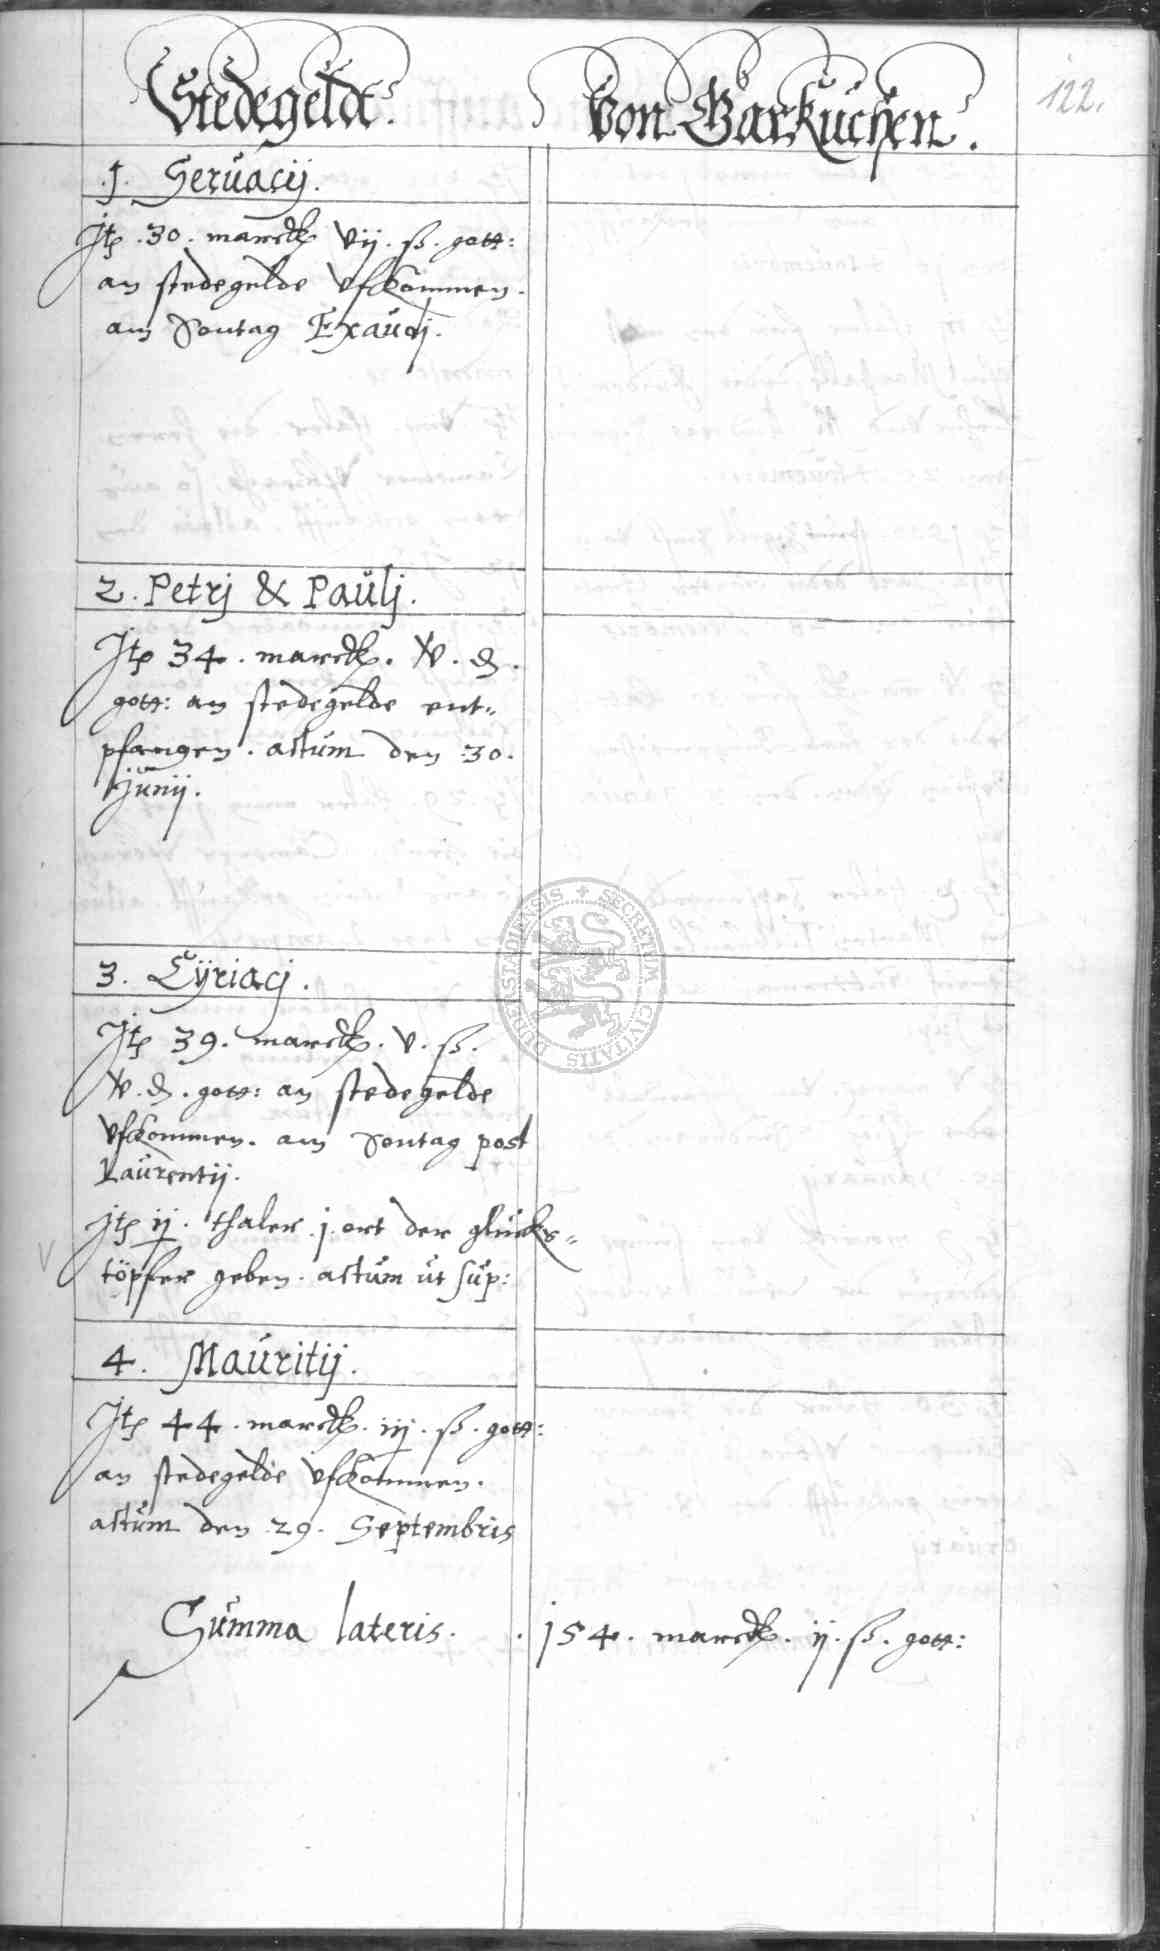 Stedegeldt. von Garkuchen.
122.
.1. Seruacij.
Jtp .30. marck vij. ß. gott:
an stedegelde vfkommen.
am Sontag Exaudj.
2. Petrj & Paulj.
Jtp 34. marck. xv. d.
gott: an stedegelde ent„
pfangen. actum den 30.
Junij.
3. Cÿriacj.
Jtp 39. marck. v. ß.
xv. d. gott: an stedegelde
vfkommen. am Sontag post
Laurentij.
Jtp ij. thaler j. ort der glücks„
töpffer geben. actum ut sup:
4. Mauritij.
Jtp 44. marck. iij. ß. gott:
an stedegelde vfkommen.
actum den 29. Septembris
Summa lateris. . 154. marck. ij. ß. gott:
SECRETUM CIVITATIS DUDERSTADIENSIS